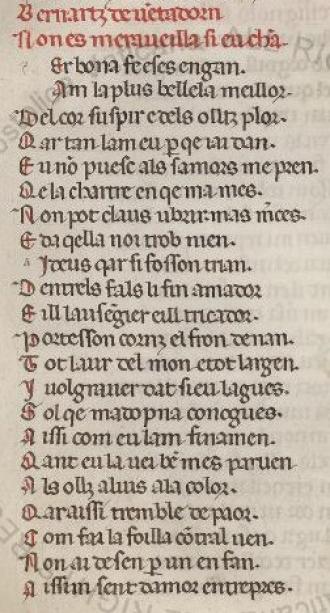 Bernartz de uẽtadorn
Non es merauеilla si eu chã.
Er bona fe eses engan.
Am la plus bellela meillor.
Del cor suspir e dels ollz plor.
Qar tan lam eu p qe iai dan.
E u nõ puesc als samors me pren.
De la chartre en qe ma mes.
Non pot claus ubrir mas m̃ces.
E da qella noi trob nien.
A ideus qar si fosson trian.
D entrels fals li fin amador
E ill lausẽgier eill tricador.
Portesson cornz el fron denan.
Tot laur del mon etot largen.
I uolgrauer dat sieu lagues.
Sol qe ma dopna conogues.
Aissi com eu lam finamen.
Qant eu la uei bẽ mes paruen
Als ollz al uis a la color.
Qar aissi tremble de paor.
Com fai la foilla cõtral uen.
Non ai de sen p un en fan.
Aissim sent damor entrepres.